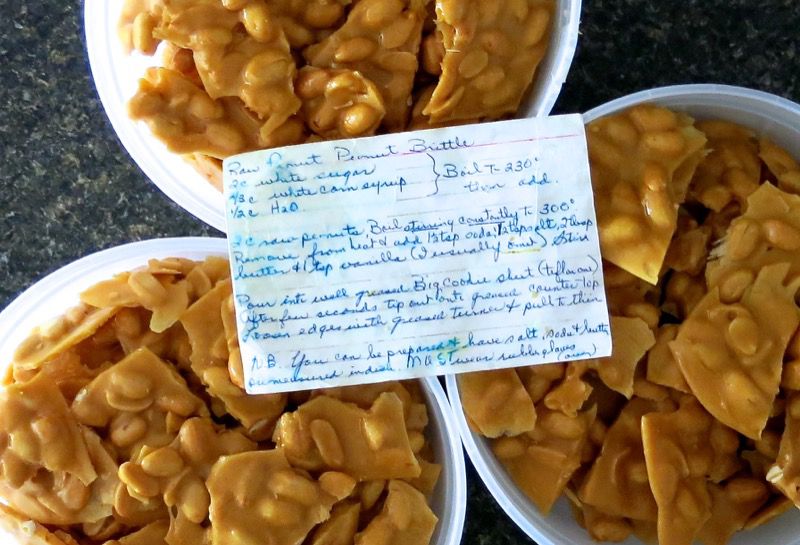 Raw Peanut Peanut Brittle
2c white sugar
2/3c white corn syrup } Boil T- 230°
1/2c H2O then add.
3c raw peanuts Boil stirring constantly T- 300°
Remove from heat & add 1 tsp soda, tsp salt, 2 tbsp
butter & 1 tsp vanilla (I usually omit) Stir
Pour into well greased Big Cookie Sheet (teflon one)
After few seconds tip out onto greased counter top
Loosen edges with greased turner & pull to thin
N.B. You can be prepared & have salt, soda & butter
measured in dish. MUST wear rubber gloves
(over)